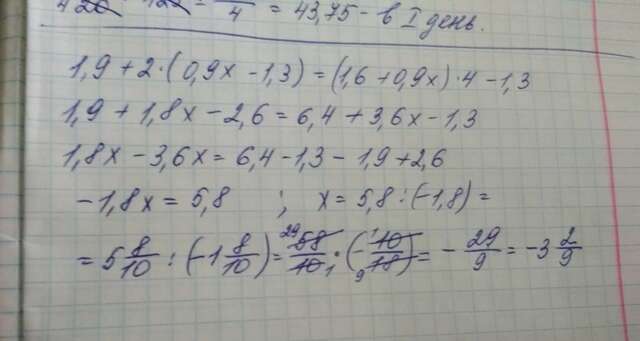 4 = 43,75 - в I день.
1,9 + 2·(0,9x - 1,3) = (1,6 + 0,9x)·4 - 1,3
1,9 + 1,8x - 2,6 = 6,4 + 3,6x - 1,3
1,8x - 3,6x = 6,4 - 1,3 - 1,9 + 2,6
-1,8x = 5,8 ; x = 5,8 : (-1,8) =
= 5 8/10 : (-1 8/10) = 58/10 · (-10/18) = - 29/9 = -3 2/9